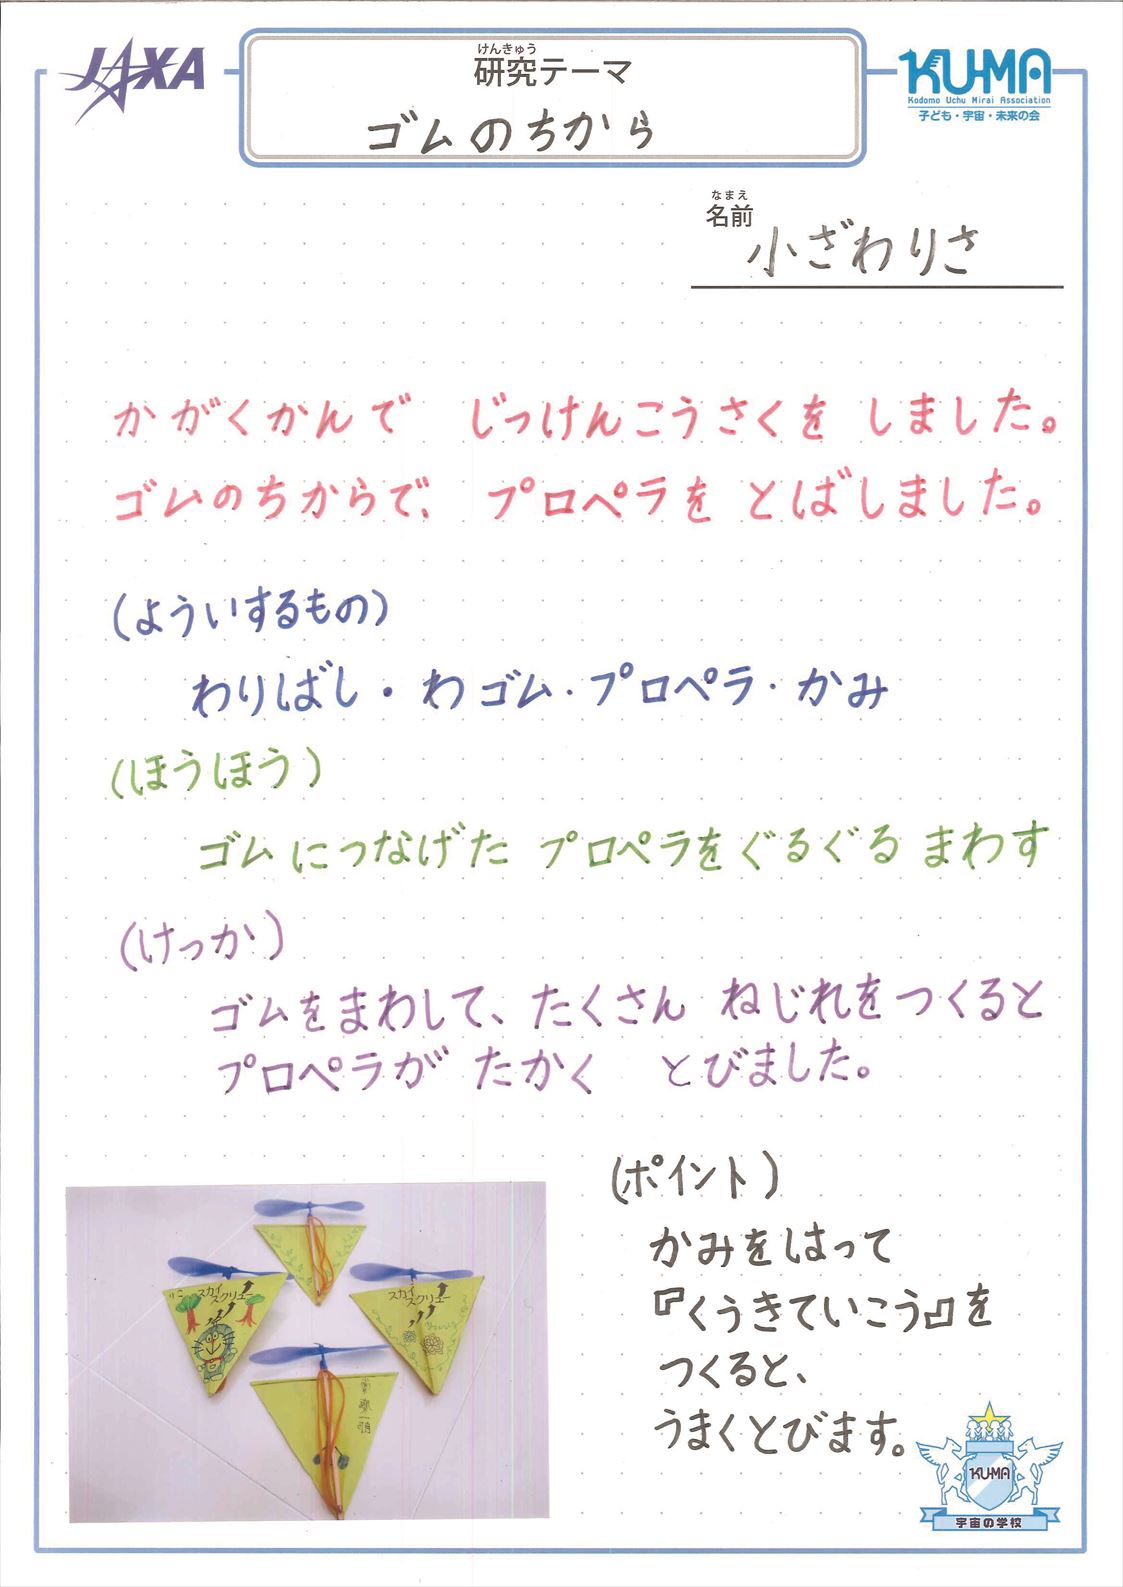 JAXA
けんきゅう
研究テーマ
ゴムのちから
KU-MA
Kodomo Uchu Mirai Association
子ども・宇宙・未来の会
なまえ
名前
小ざわりさ
かがくかんで じっけんこうさくを しました。
ゴムのちからで、 プロペラを とばしました。
(よういするもの)
わりばし・わゴム・プロペラ・かみ
(ほうほう)
ゴムにつなげた プロペラをぐるぐる まわす
(けっか)
ゴムをまわして、たくさん ねじれをつくると
プロペラが たかく とびました。
(ポイント)
かみをはって
『くうきていこう』を
つくると、
うまくとびます。
スカイ
スクリュー
スカイ
スクリュー
KU-MA
宇宙の学校